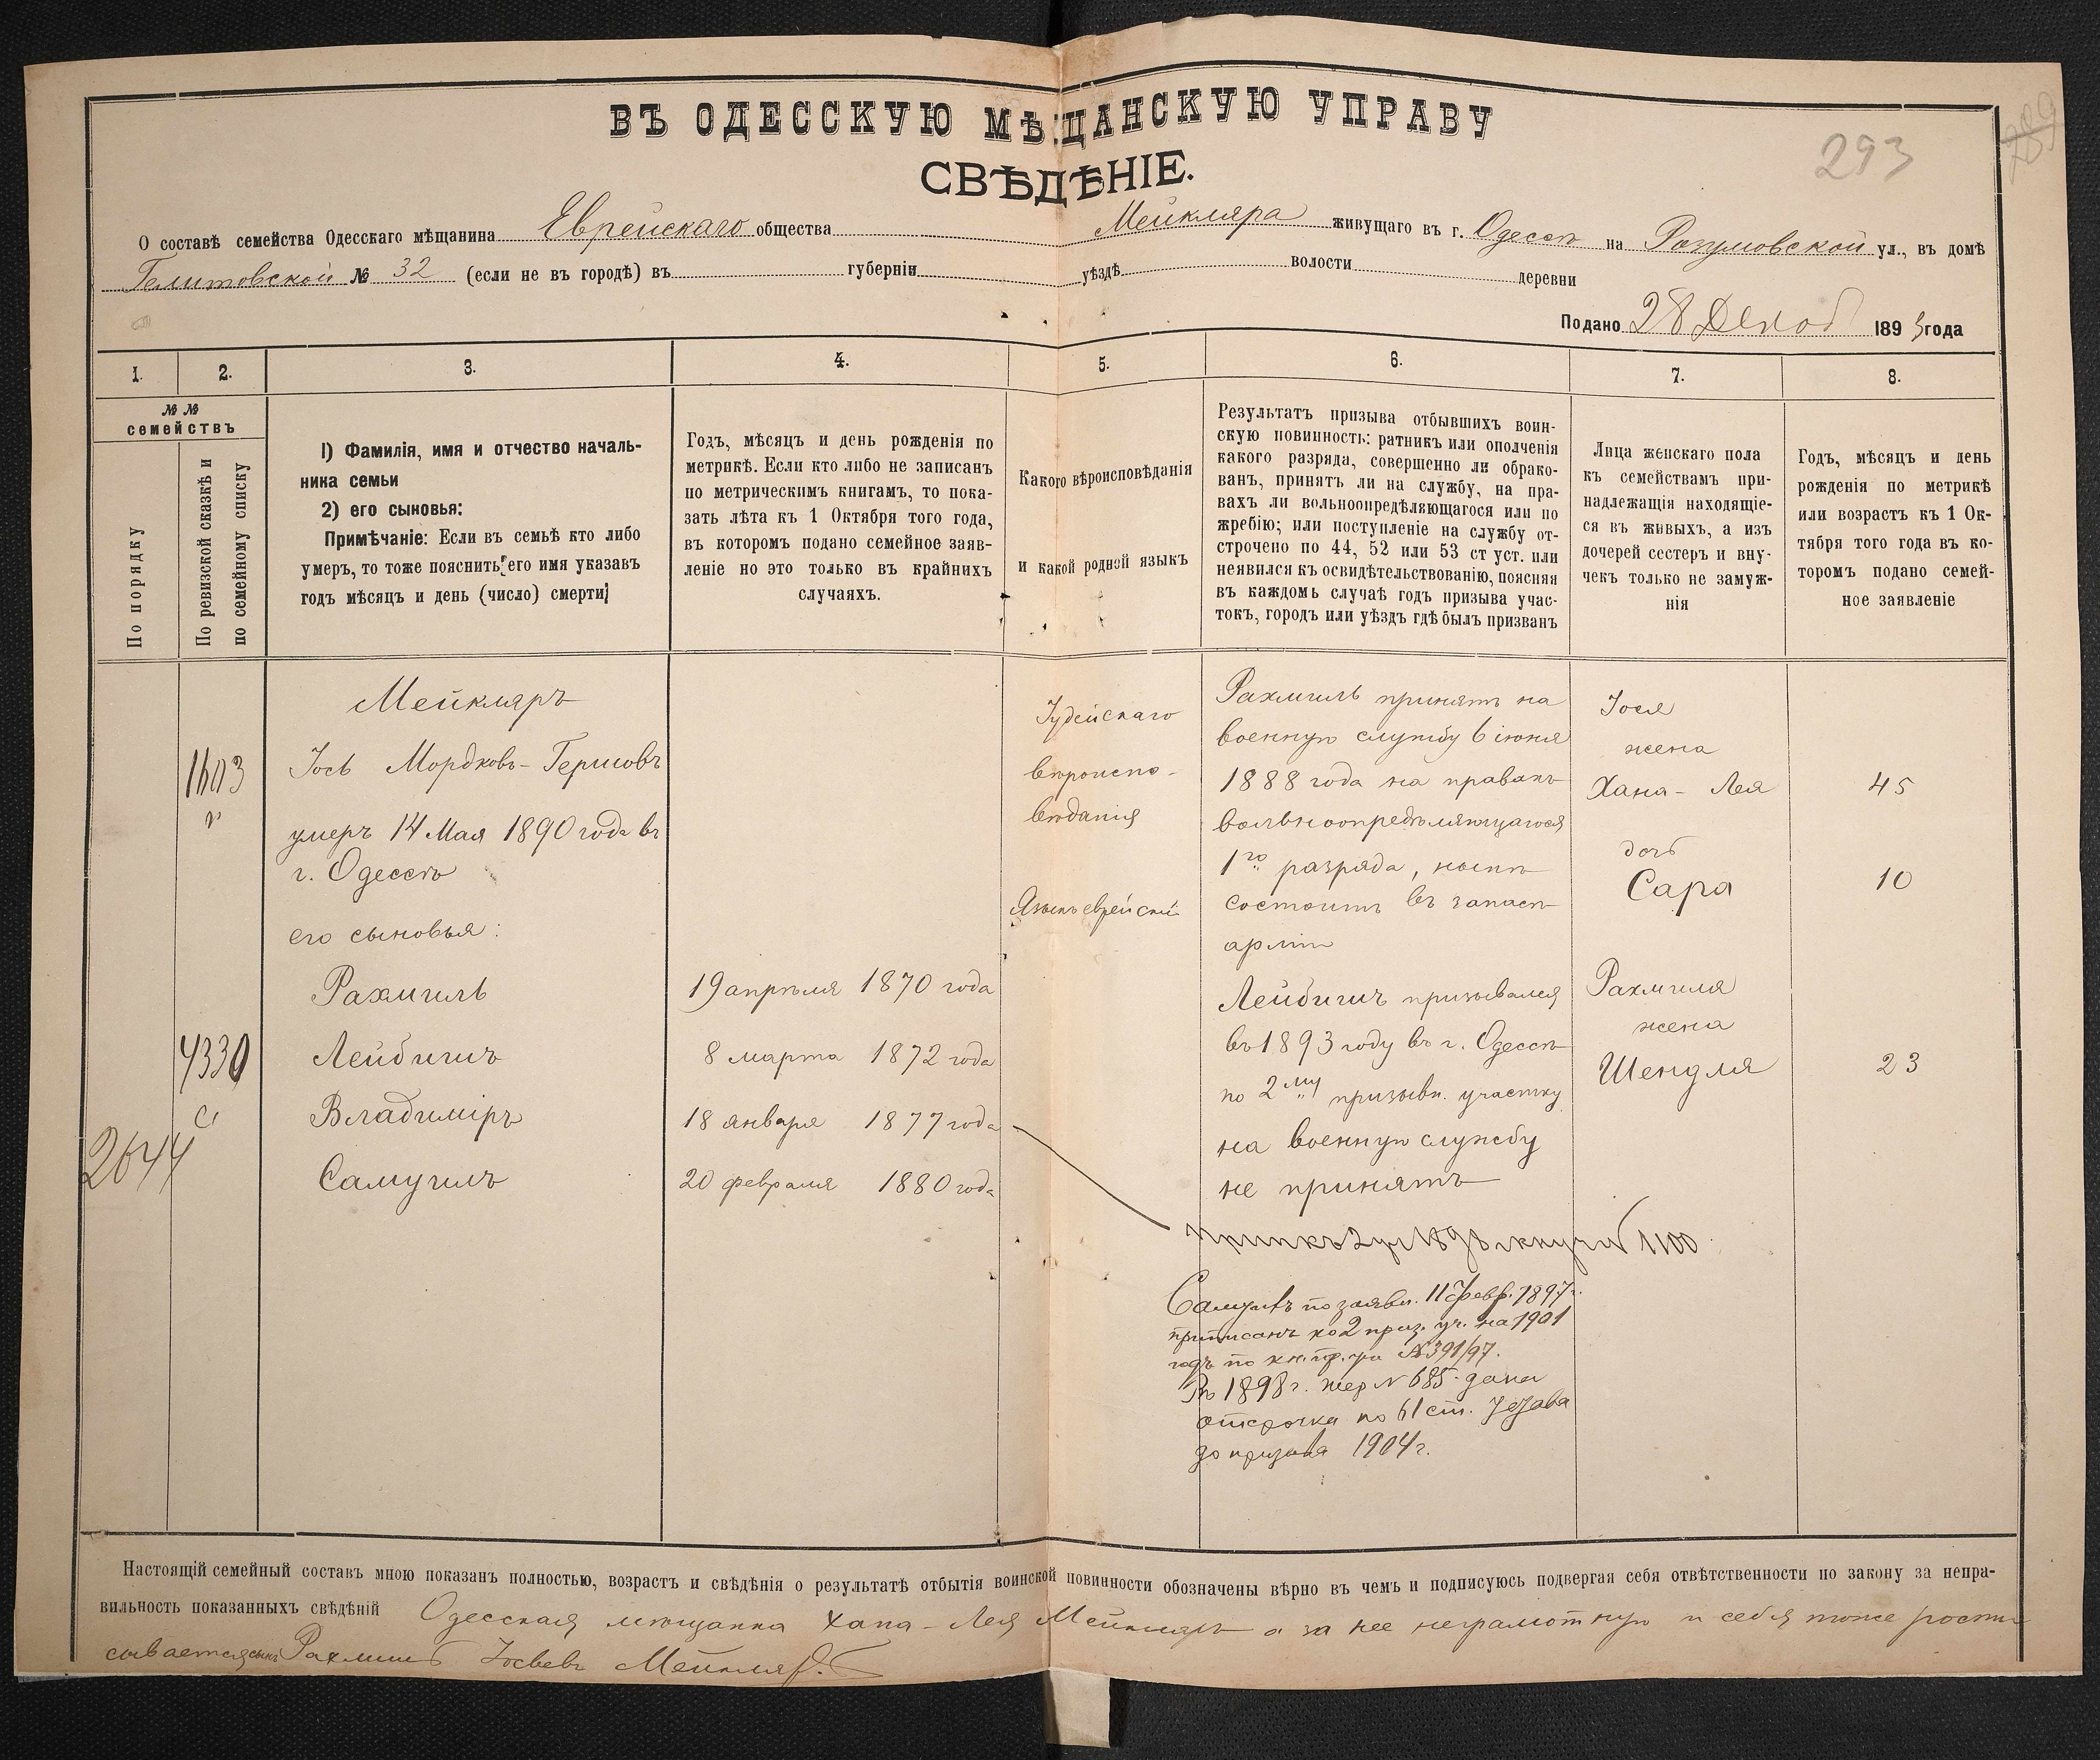 293
789
ВЪ ОДЕССКУЮ МѢЩАНСКУЮ УПРАВУ
СВѢДѢНІЕ.
О составѣ семейства Одесскаго мѣщанина Еврейскаго общества Мейкляра живущаго въ г. Одессѣ на Разумовской ул., въ домѣ
№ 32 (если не въ городѣ) въ губерніи уѣздѣ волости деревни
Подано 28 Декаб 1893 года
1. 2. 3. 4. 5. 6. 7. 8.
№ №
семействъ
По порядку
По ревизской сказкѣ и
по семейному списку
1) Фамилія, имя и отчество началь-
ника семьи
2) его сыновья:
Примѣчаніе: Если въ семьѣ кто либо
умеръ, то тоже пояснить его имя указавъ
годъ мѣсяцъ и день (число) смерти
Годъ, мѣсяцъ и день рожденія по
метрикѣ. Если кто либо не записанъ
по метрическимъ книгамъ, то пока-
зать лѣта къ 1 Октября того года,
въ которомъ подано семейное заяв-
леніе но это только въ крайнихъ
случаяхъ.
Какого вѣроисповѣданія
и какой родной языкъ
Результатъ призыва отбывшихъ воин-
скую повинность: ратникъ или ополченія
какого разряда, совершенно ли обрако-
ванъ, принятъ ли на службу, на пра-
вахъ ли вольноопредѣляющагося или по
жребію; или поступленіе на службу от-
строчено по 44, 52 или 53 ст уст. или
неявился къ освидѣтельствованію, поясняя
въ каждомъ случаѣ годъ призыва учас-
токъ, городъ или уѣздъ гдѣ былъ призванъ
Лица женскаго пола
къ семействамъ при-
надлежащія находящіе-
ся въ живыхъ, а изъ
дочерей сестеръ и вну-
чекъ только не замуж-
нія
Годъ, мѣсяцъ и день
рожденія по метрикѣ
или возрастъ къ 1 Ок-
тября того года въ ко-
торомъ подано семей-
ное заявленіе
1603
4330
2644
Мейкляръ
Іось Мордковъ-Гершовъ
умеръ 14 Мая 1890 года въ
г. Одессѣ
его сыновья:
Рахмиль
Лейбишъ
Владиміръ
Самуилъ
19 апрѣля 1870 года
8 марта 1872 года
18 января 1877 года
20 февраля 1880 года
Іудейскаго
вѣроиспо-
вѣданія
Языкъ еврейскій
Рахмиль принятъ на
военную службу 6 іюня
1888 года на правахъ
вольноопредѣляющагося
1го разряда, нынѣ
состоитъ въ запасѣ
арміи
Лейбишъ призывался
въ 1893 году въ г. Одессѣ
по 2му призывн. участку
на военную службу
не принятъ
1100
Самуилъ по заявл. 11 Февр. 1897 г.
приписанъ ко 2 приз. уч. на 1901
годъ по кн. пр. уч №391/97.
Въ 1898 г. жер № 685 дана
отсрочка по 61 ст. Устава
до призыва 1904 г.
Іося
жена
Хана-Лея
дочь
Сара
Рахмиля
жена
Шендля
45
10
23
Настоящій семейный составъ мною показанъ полностью, возрастъ и свѣдѣнія о результатѣ отбытія воинской повинности обозначены вѣрно въ чемъ и подписуюсь подвергая себя отвѣтственности по закону за непра-
вильность показанныхъ свѣдѣній Одесская мѣщанка Хана-Лея Мейкляръ а за нее неграмотную и себя тоже роспи
сывается сынъ Рахмиль Іосьевъ Мейкляръ